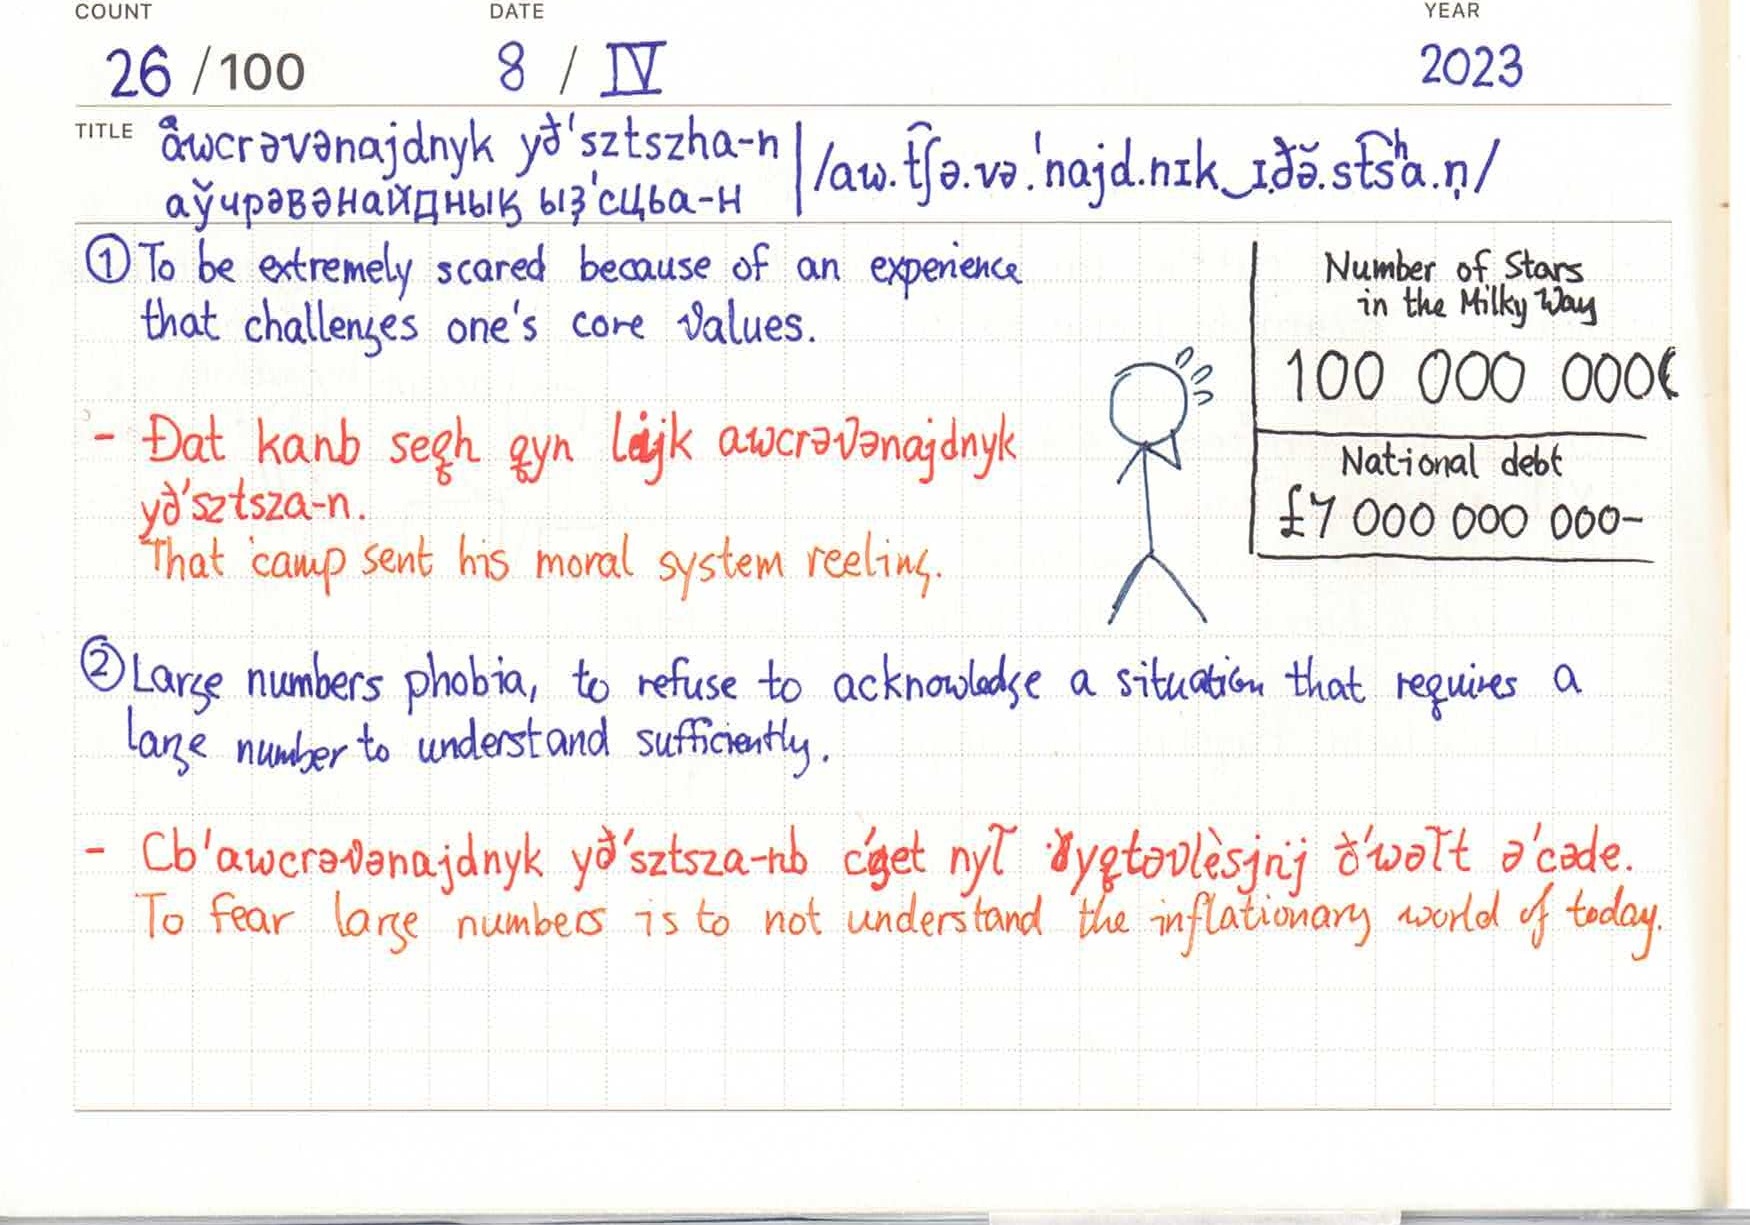 COUNT DATE YEAR
26 /100 8 / IV 2023
TITLE åwcrəvənajdnyk yð'sztszha-n
/aw.t͡ʃə.və.ˈnajd.nɪk‿ɪ.ðə̆.st͡sʰa.n̩/
аўчрәвәнайдныҕ ыҙ'сцьа-н
① To be extremely scared because of an experience
that challenges one's core values.
Number of Stars
in the Milky Way
100 000 000
National debt
£7 000 000 000-
- Đat kanb seqh qyn lajk awcrəvənajdnyk
yð'sztsza-n.
That camp sent his moral system reeling.
② Large numbers phobia, to refuse to acknowledge a situation that requires a
large number to understand sufficiently.
- Cb'awcrəvənajdnyk yð'sztsza-nb nyl̃ ð'wəl̃t ə'cəde.
To fear large numbers is to not understand the inflationary world of today.